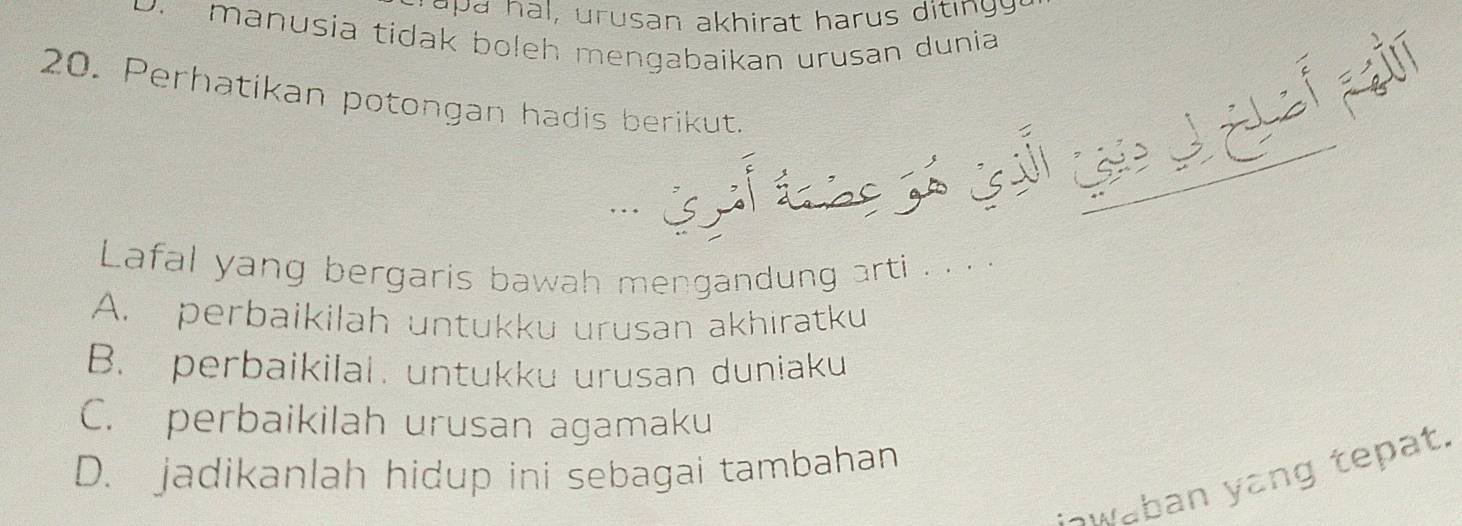 hal, urusan akhirat harus
manusia tidak boleh mengabaikan urusan dunia
20. Perhatikan potongan hadis berikut.
اَللّٰهُمَّ أَصْلِحْ لِي دِيْنِيْ الَّذِيْ هُوَ عِصْمَةُ أَمْرِيْ ...
Lafal yang bergaris bawah mengandung arti . . . .
A. perbaikilah untukku urusan akhiratku
B. untukku urusan duniaku
C. perbaikilah urusan agamaku
D. jadikanlah hidup ini sebagai tambahan
yang tepat.